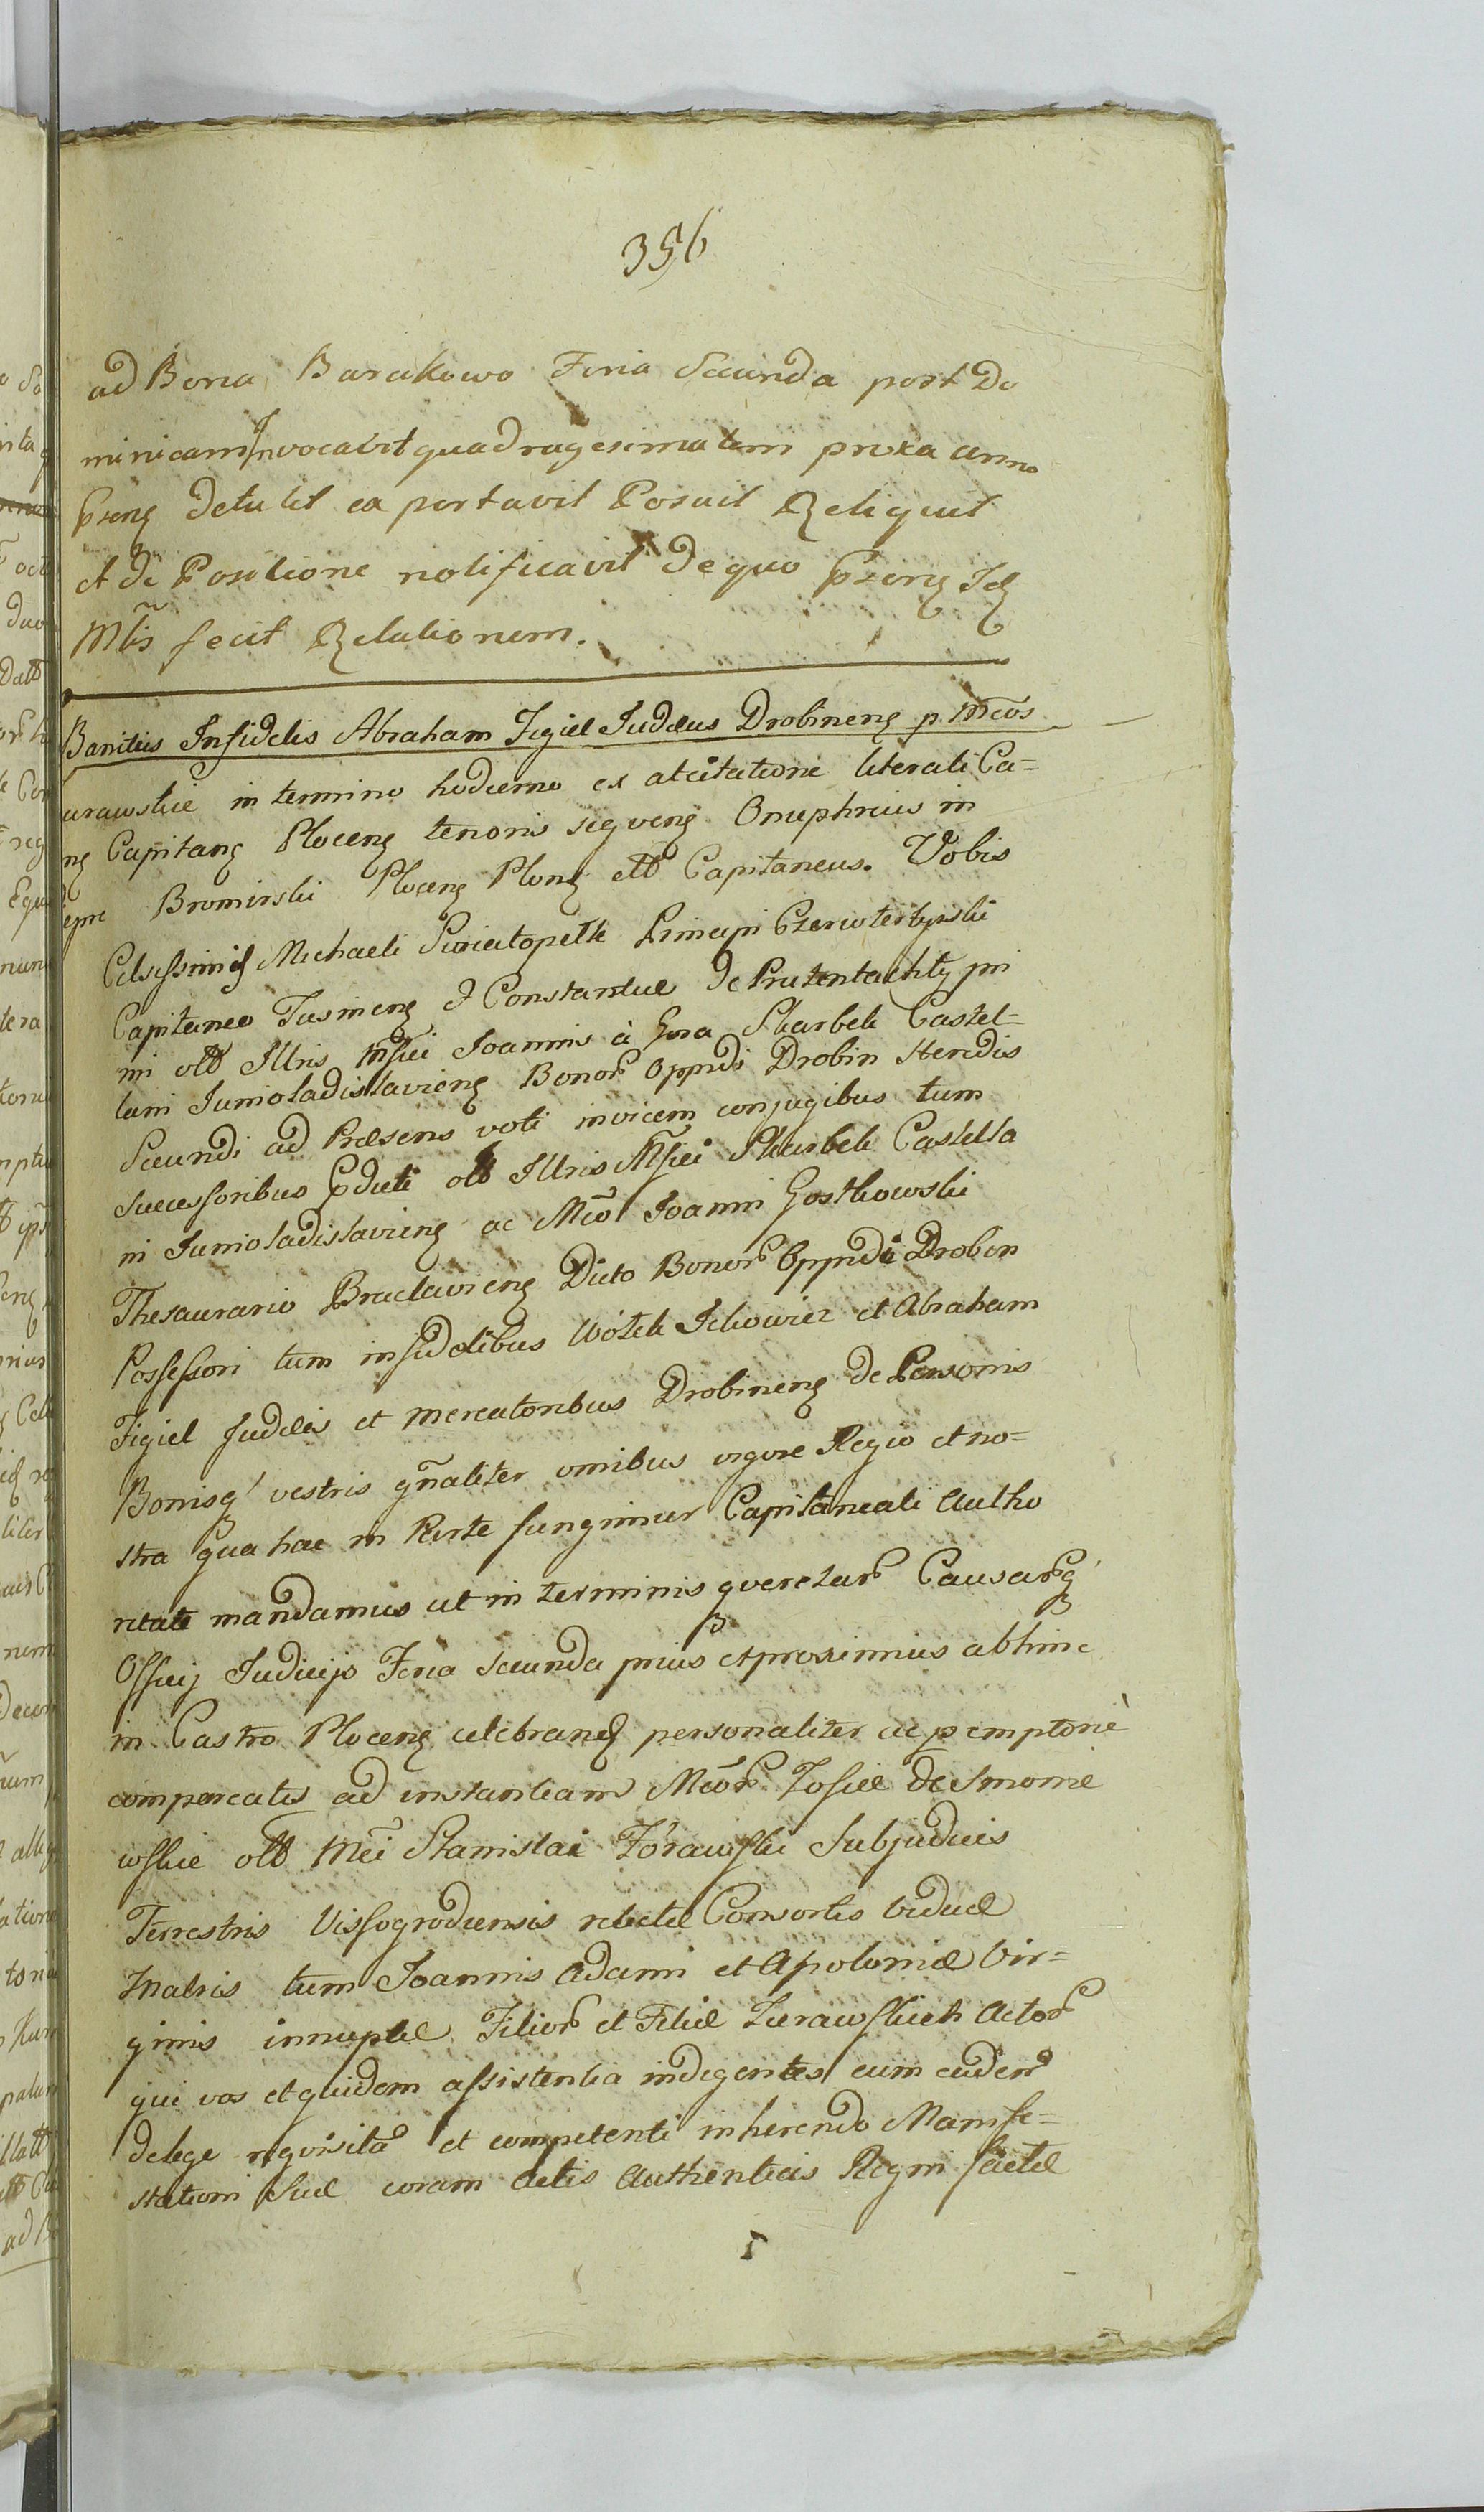 356
ad Bona Barakowo Feria Secunda post Do
minicam Invocavit quadragesimalem proxa anno
Pseng detulit ea portavit Posuit Reliquit
et de Positione notificavit de quo Pseng Idq
Mlis̃ fecit Relationem.
Banitus Infidelis Abraham Figiel Judæus Drobineng p. Mcos
urawskie in termino hodierno ex atcitatione literali Ca=
ng Capitang Ploceng tenoris seqveng Onuphrius in
epre Bromirski Ploceng Plong ettb Capitaneus. Vobis
Celsissimis Michaeli Swiatopelk Principi Czetwertynski
Capitaneo Jusineng & Constantiæ de
ni olb Illris Mfici Joannis à Gora Skarbek Castel=
lani Junioladislavieng Bonor Oppndi Drobin Heredis
Secundi ad Præsens voti invicem conjugibus tum
Successoribus Pdicti olb Illris Mfici Skarbek Castella
ni Junioladislavieng ac Mco Joanni Gostkowski
Thesaurario Braclavieng Dicto Bonor Oppndi Drobin
Possessori tum infidelibus Wółek Ickowicz et Abraham
Figiel Judæis et mercatoribus Drobineng de Personis
Bonisq vestris gnaliter omnibus vigore Regio et no=
stra qua hac in Parte fungimur Capitaneali autho
ritate mandamus ut in terminis qveretar Causarq
Officij Judicijs Feria Secunda prius et proximius abhinc
in Castro Ploceng celebrandq personaliter ac pemptorie
compareatis ad instantiam Mcor Zofiæ de Smonie
wskie olb Mci Stanislai Zórawski Subjudicis
Terrestris Vissogrodiensis relictæ Consortis Viduæ
Matris tum Joannis Adami et Apoloniæ Vir=
ginis innuptæ Filior et Filiæ Zurawskich Actor
qui vos et quidem assistentia indigentes cum eadem
de lege reqvisita et competenti inherendo Manife=
stationi suæ coram Actis Authenticis Regni factæ